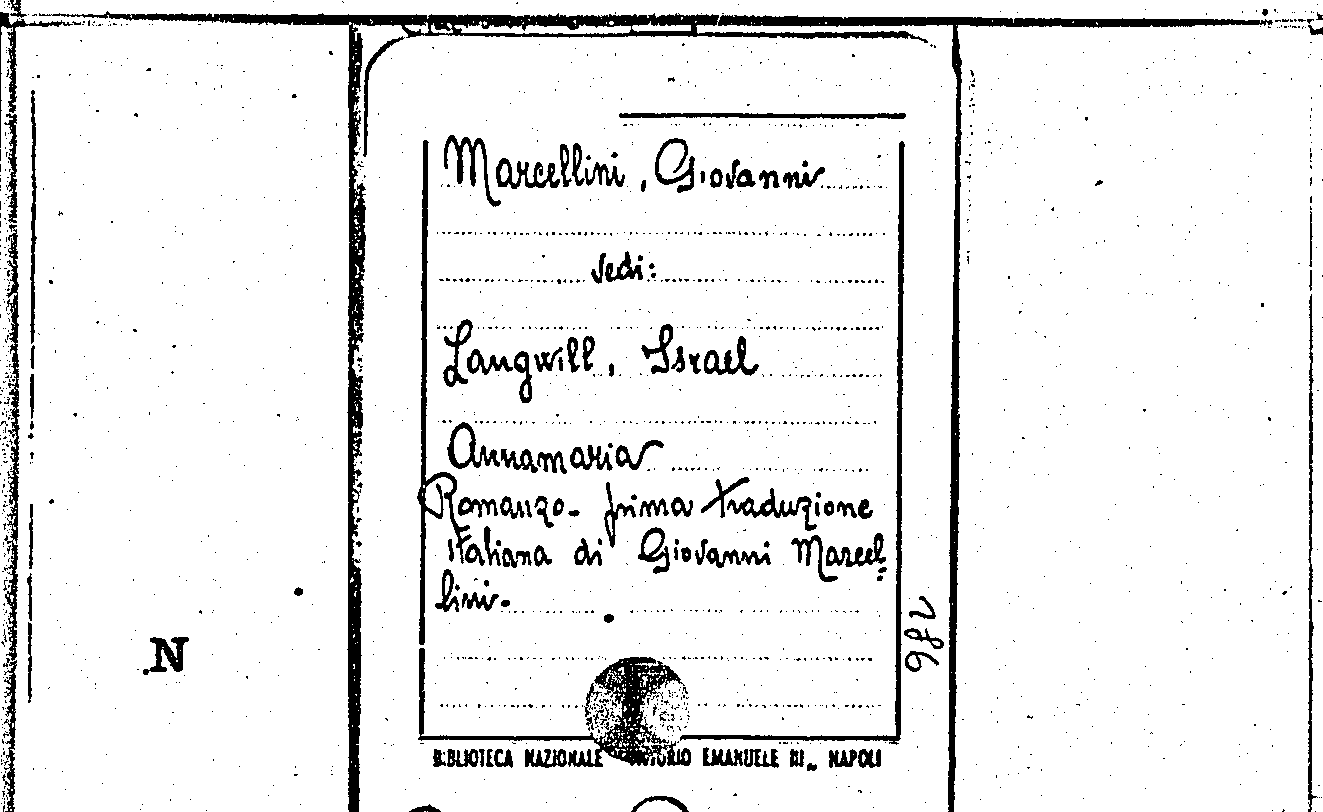 Marcellini, Giovanni
Vedi:
Zangwill, Israel
Annamaria
Romanzo - prima traduzione
italiana di Giovanni Marcel=
lini.
786
N
BIBLIOTECA NAZIONALE VITTORIO EMANUELE III - NAPOLI